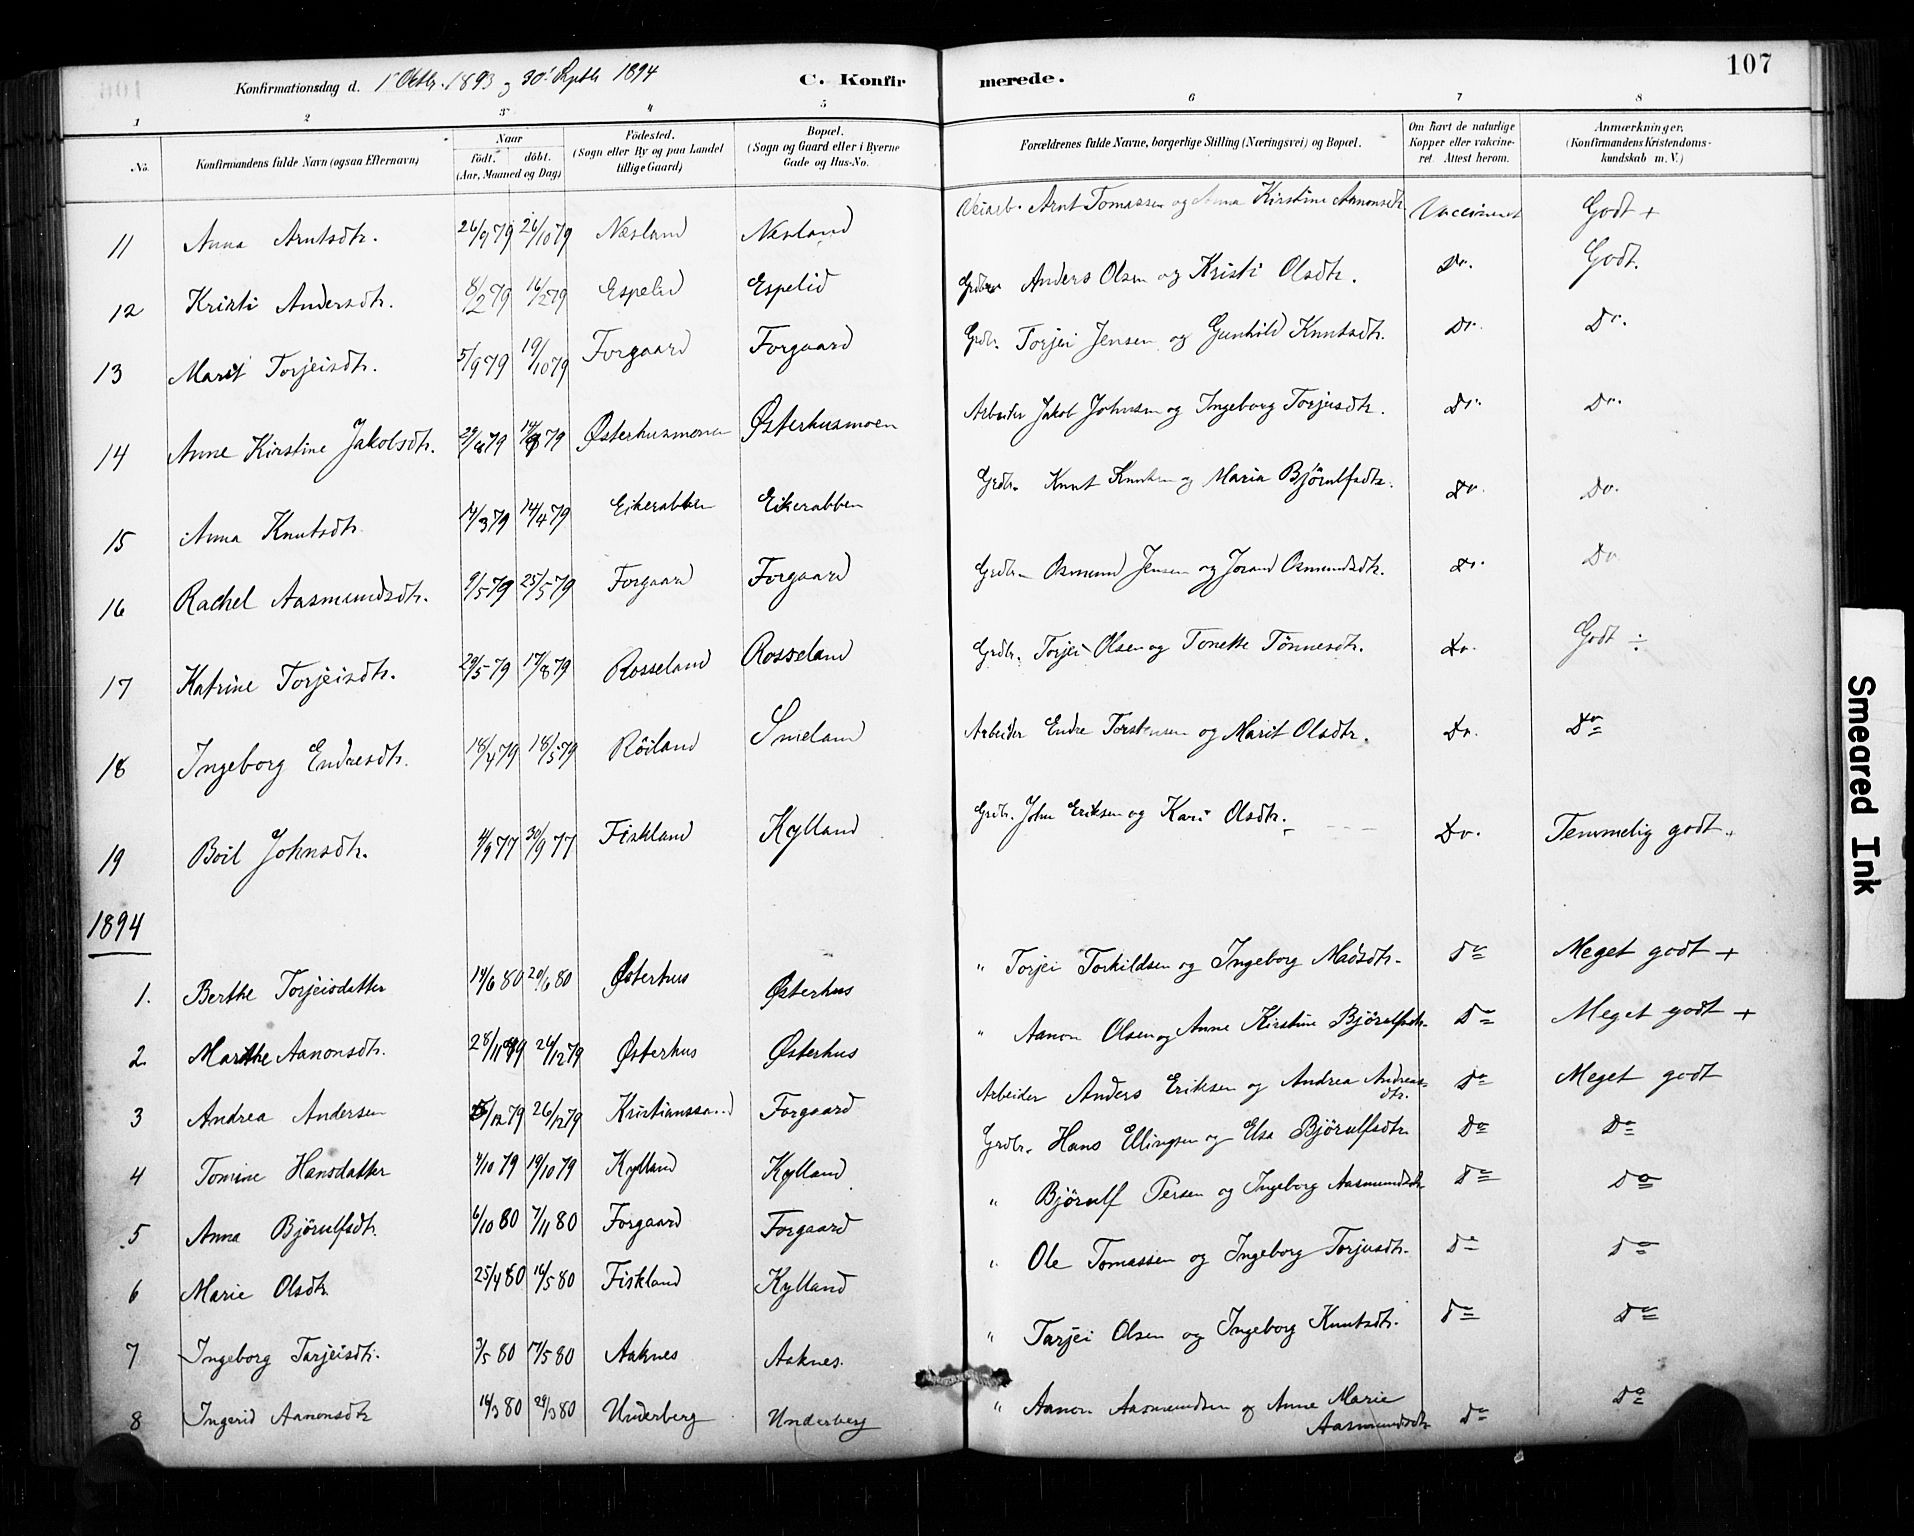 107
Konfirmationsdag d. 1' Oktbr. 1893 og 30' Septbr 1894 C. Konfirmerede.
1 2 3 4 5 6 7 8
No. Konfirmandens fulde Navn (ogsaa Efternavn) Naar født. døbt. (Aar, Maaned og Dag) Fødested. (Sogn eller By og paa Landet tillige Gaard) Bopæl. (Sogn og Gaard eller i Byerne Gade og Hus-No. Forældrenes fulde Navne, borgerlige Stilling (Næringsvei) og Bopæl. Om havt de naturlige Kopper eller vakcineret. Attest herom. Anmærkninger. (Konfirmandens Kristendomskundskab m. V.)
11 Anna Arntsdtr. 26/9 79 26/10 79 Næsland Næsland Veiarb. Arnt Tomassen og Anna Kirstine Aanonsdtr. Vaccineret Godt +
12 Kristi Andersdtr. 8/2 79 16/2 79 Espelid Espelid Grdbr. Anders Olsen og Kristi Olsdtr. Do. Godt.
13 Marit Torjeisdtr. 5/9 79 19/10 79 Forgaard Forgaard Grdbr. Torjei Jensen og Gunhild Knutsdtr. Do. Do.
14 Anne Kirstine Jakobsdtr. 29/8 79 14/9 79 Østerhusmoen Østerhusmoen Arbeider Jakob Johnsen og Ingeborg Torjusdtr. Do. Do.
15 Anna Knutsdtr. 14/3 79 14/4 79 Eikerabben Eikerabben Grdbr. Knut Knutsen og Maria Bjørulfsdtr. Do. Do.
16 Rachel Aasmundsdtr. 9/5 79 25/5 79 Forgaard Forgaard Grdbr. Osmund Jensen og Jorand Osmundsdtr. Do. Do.
17 Katrine Torjeisdtr. 29/5 79 17/8 79 Rosseland Rosseland Grdbr. Torjei Olsen og Tonette Tønnesdtr. Do. Godt ÷
18 Ingeborg Endresdtr. 18/4 79 18/5 79 Røiland Smeland Arbeider Endre Torstensen og Marit Olsdtr. Do. Do
19 Boil Johnsdtr. 4/9 77 30/9 77 Fiskland Kylland Grdbr. John Eriksen og Kari Olsdtr. Do. Temmelig godt +
1894
1. Berthe Torjeisdatter 14/6 80 20/6 80 Østerhus Østerhus " Torjei Torkildsen og Ingeborg Madsdtr. Do Meget godt +
2. Marthe Aanonsdtr. 28/11 79 24/12 79 Østerhus Østerhus " Aanon Olsen og Anne Kirstine Bjørulfsdtr. Do Meget godt +
3 Andrea Andersen 5/12 79 26/12 79 Kristianssand Forgaard Arbeider Anders Eriksen og Andrea Andreasdtr. Do Meget godt
4 Tomine Hansdatter 4/10 79 19/10 79 Kylland Kylland Grdbr. Hans Ellingsen og Elsa Bjørulfsdtr. Do Do
5 Anna Bjørulfsdtr. 6/10 80 7/11 80 Forgaard Forgaard " Bjørulf Persen og Ingeborg Aasmundsdtr Do Do
6 Marie Olsdtr. 25/4 80 16/5 80 Fiskland Kylland " Ole Tomassen og Ingeborg Torjusdtr. Do Do
7 Ingeborg Tarjeisdtr. 3/5 80 17/5 80 Aaknes Aaknes. " Tarjei Olsen og Ingeborg Knutsdtr. Do Do
8 Ingerid Aanonsdtr 16/3 80 29/3 80 Underberg Underberg " Aanon Aasmundsen og Anne Marie Aasmundsdtr Do Do
Smeared Ink